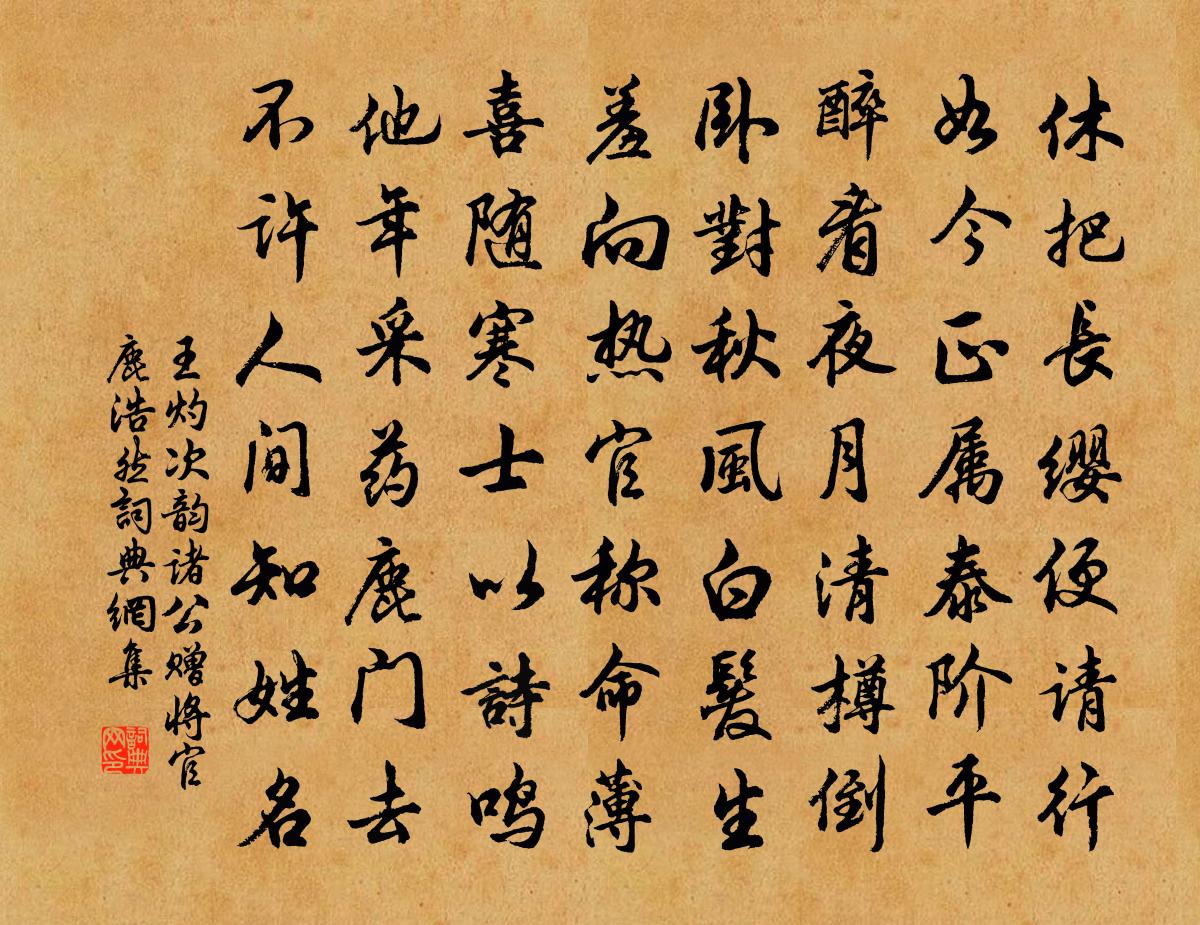 休把長缨便请行
如今正属泰阶平
醉看夜月清樽倒
卧對秋風白髮生
羞向热官称命薄
喜随寒士以詩鸣
他年采药鹿门去
不许人间知姓名
王灼次韵诸公赠将官
鹿浩然詞典網集
詞典网印